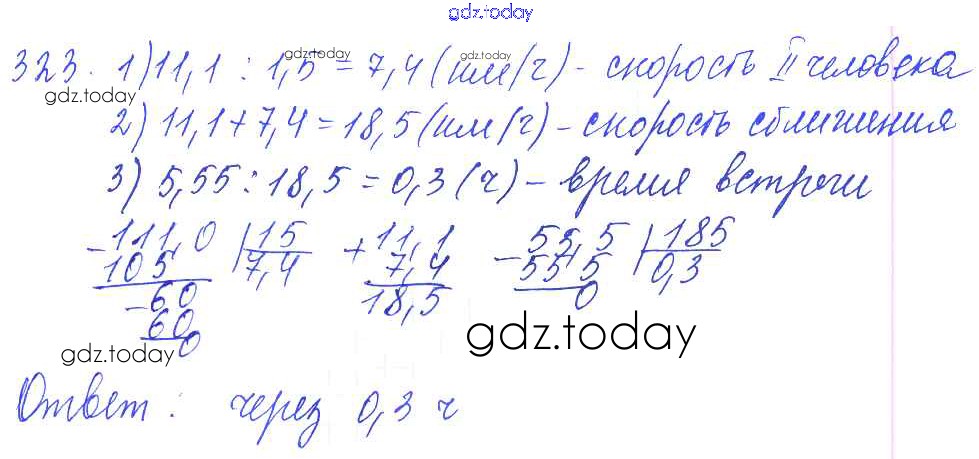 gdz.today
323. 1) 11,1 : 1,5 = 7,4 (км/ч) - скорость II человека
gdz.today
gdz.today
gdz.today
2) 11,1 + 7,4 = 18,5 (км/ч) - скорость сближения
3) 5,55 : 18,5 = 0,3 (ч) - время встречи
- 111,0 | 15 + 11,1 - 55,5 | 185
105 7,4 7,4 55 5 0,3
- 60 18,5 0
60
0
gdz.today
gdz.today
Ответ : через 0,3 ч